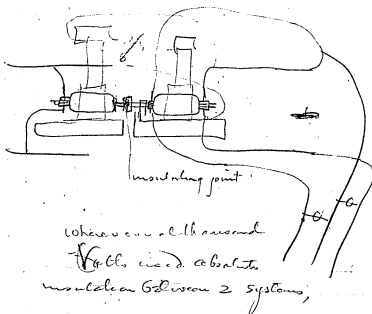 insulating joint
where several thousand
Volts need absolute
insulation between 2 systems,